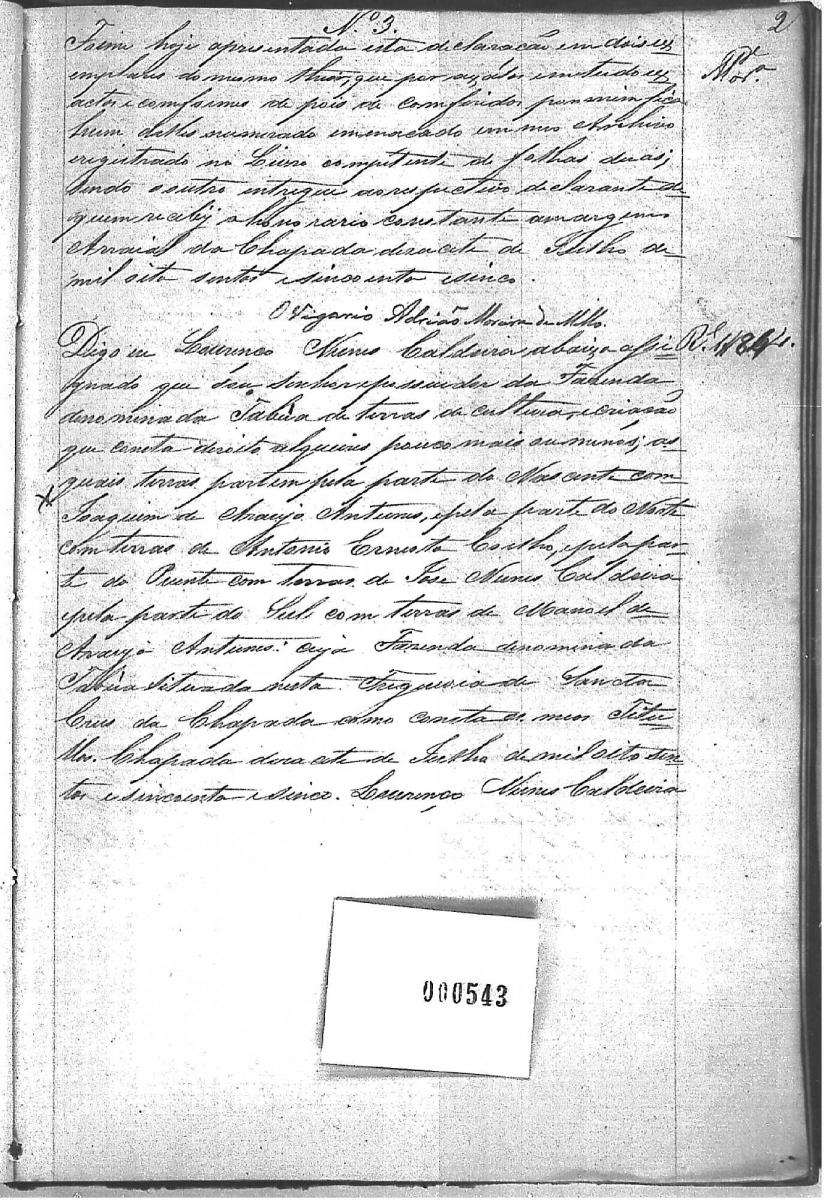 2
N.º 3.
Foime hoje apresentada esta declaração em dois ex
emplares do mesmo theor, que por os
actos e comformes de pois de comferidos por mim fica
hum delles numerado emmaçado em meu Archivo
eregistrado no Livro competente de folhas duas,
sendo o outro entregue ao respectivo declarante de
quem recebij o honorario constante amargem
Arraial da Chapada desacete de Julho de
mil oito sentos e sincoenta e sinco.
O Vigario Adrião Moreira de Mello.
Digo eu Lourenço Nunes Caldeira abaixo assi
gnado que sou senhor epossuidor da Fazenda
denominada Tabúa de terras de cultura, e criação
que consta de oito alqueires pouco mais ou menos, as
quais terras partem pela parte do Nascente com
Joaquim de Araujo Antunes, epela parte do Norte
com terras de Antonio Ernesto Coelho, epela par
te do Puente com terras de José Nunes Caldeira
epela parte do Sul com terras de Manoel de
Araujo Antunes: cuja Fazenda denominada
Tabúa situada nesta Freguesia de Sancta
Crus da Chapada como consta de meu Titu
llos. Chapada desacete de Julho de mil oito sen
tos e sincoenta e sinco. Lourenço Nunes Caldeira
000543